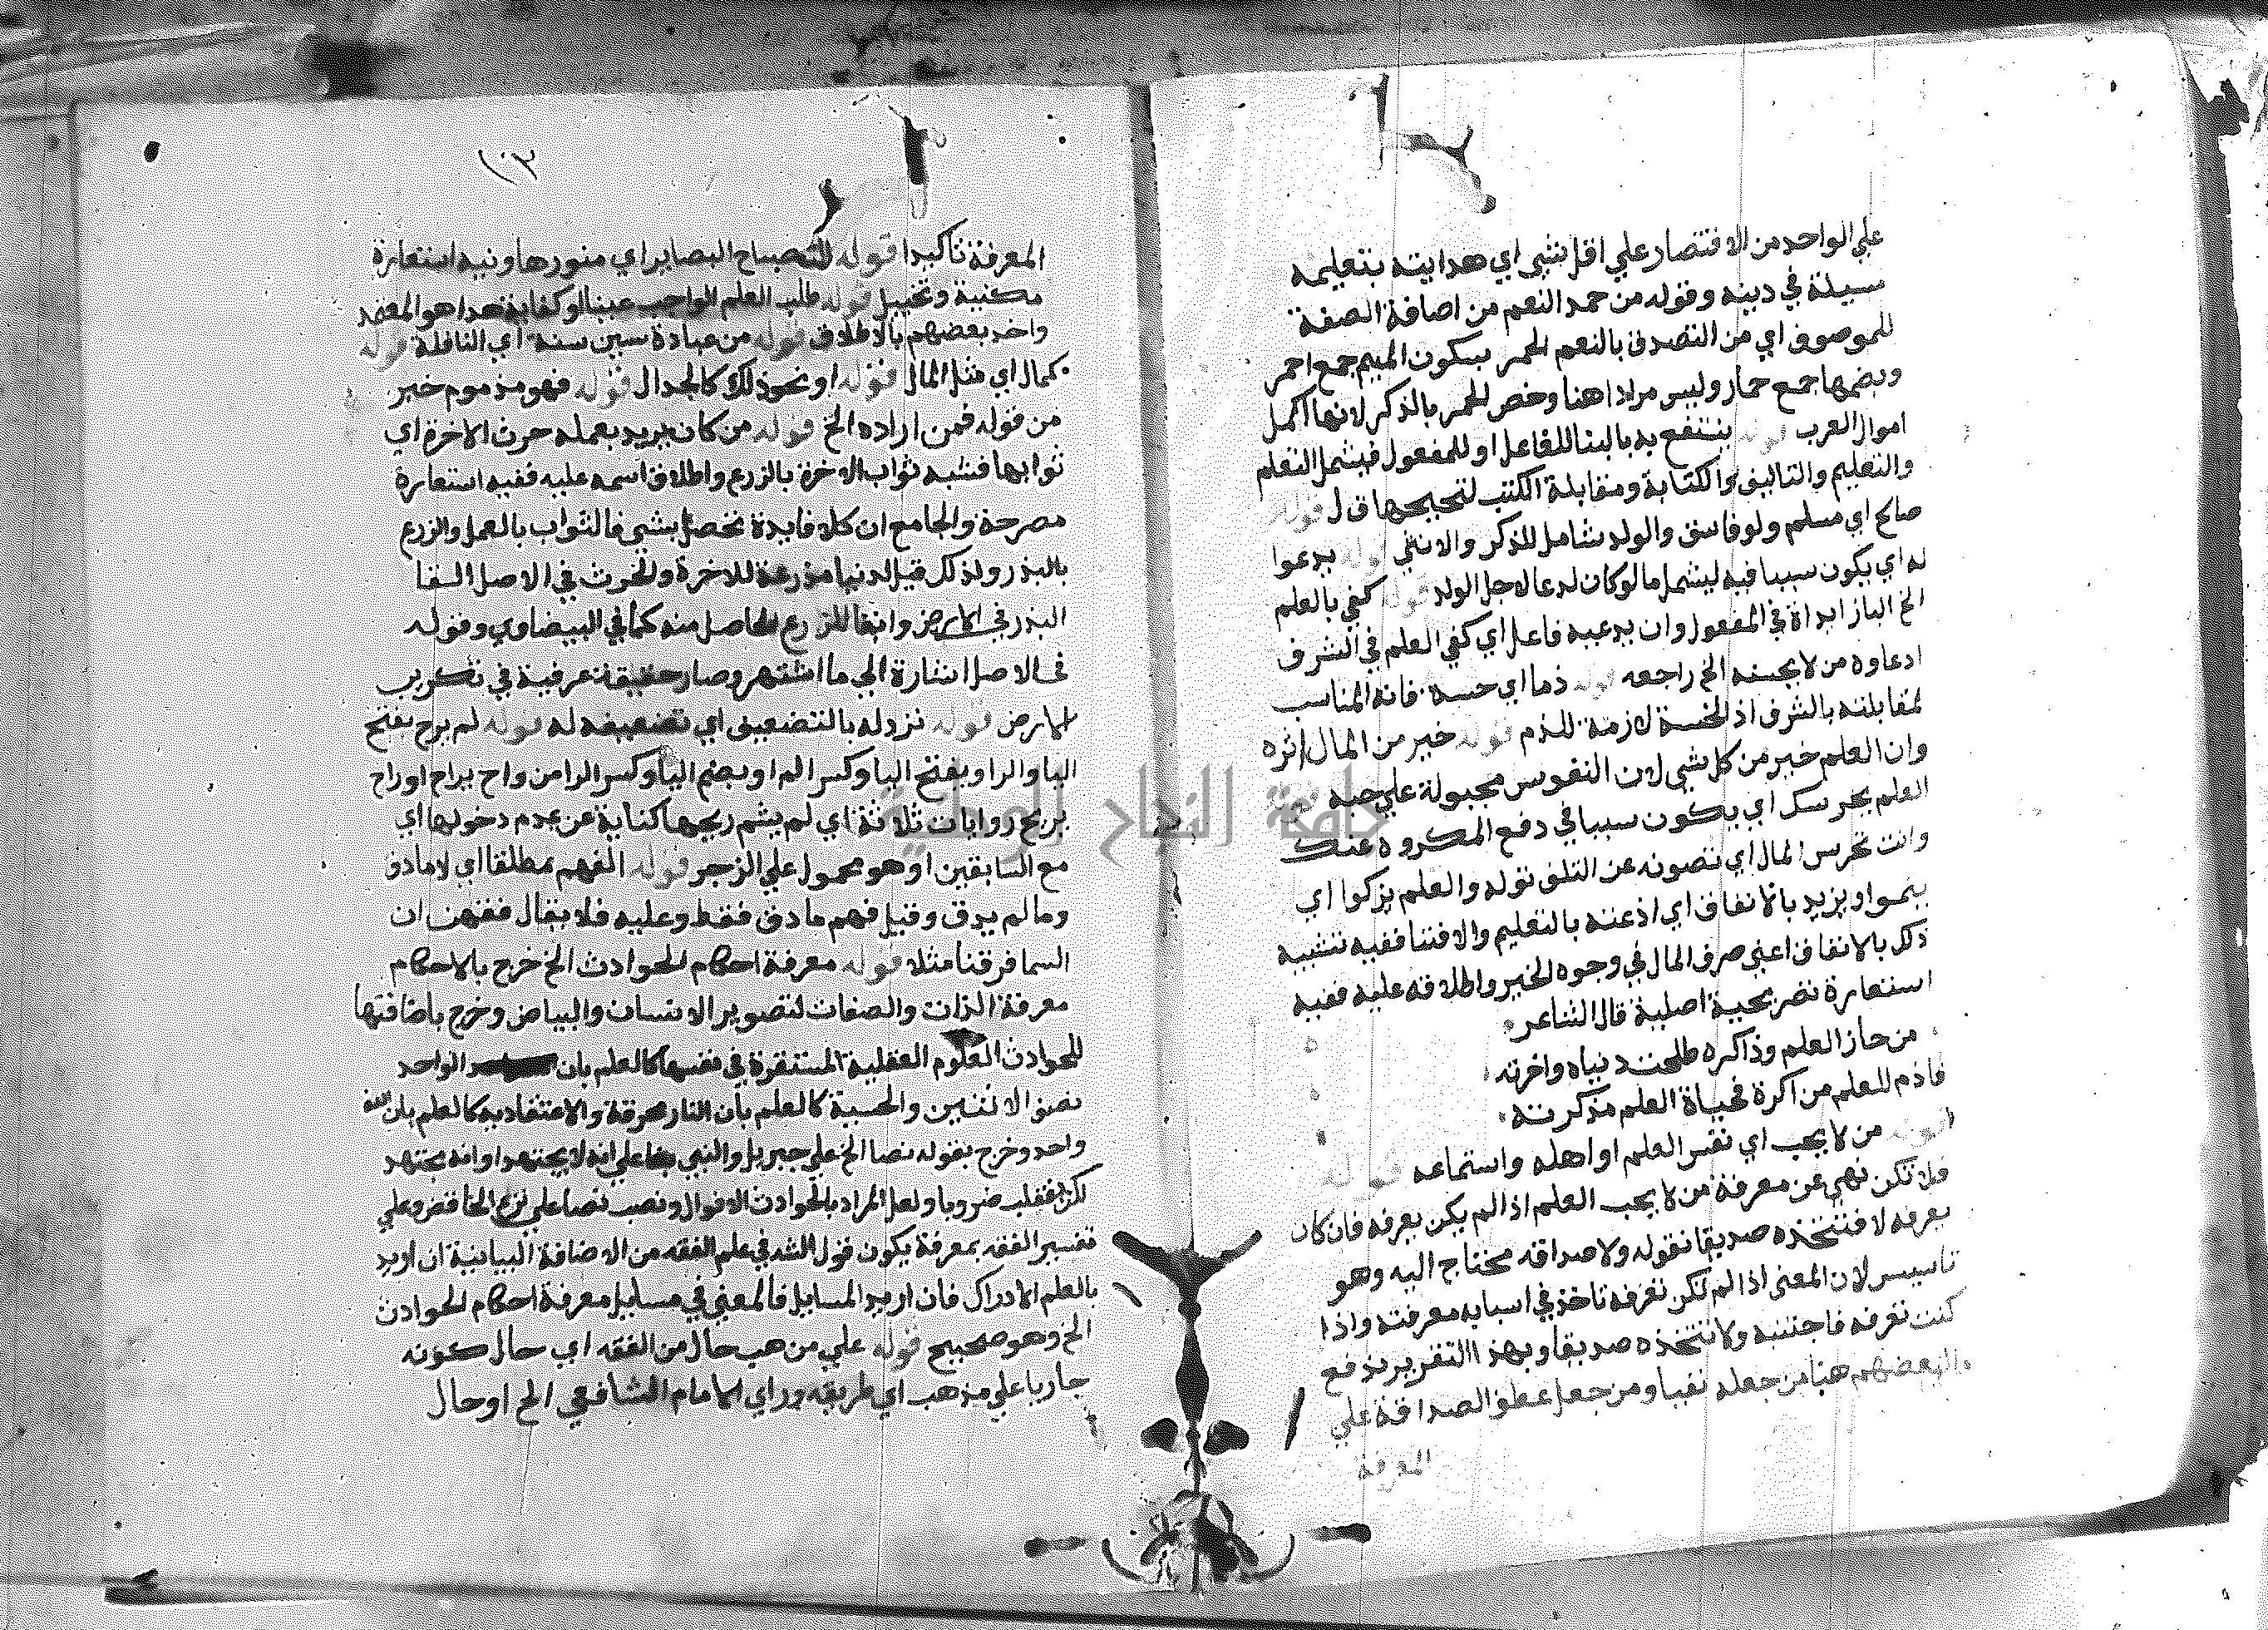 علي الواحد من الاقتصار علي اقل بشي اي هدايته بتعليمه
مسيلة في دينه وقوله من حمد النعم من اضافة الصفة
للموصوف اي من التصدق بالنعم الحمر بسكون الميم جمع احمر
وبضمها جمع حمار وليس مرادا هنا وخص الحمر بالذكر لانها اكمل
اموال العرب قوله ينتفع به بالبنا للفاعل او للمفعول فيشمل التعلم
والتعليم والتاليف والكتابة ومقابلة الكتب لتصحيحها ق ل قوله
صالح اي مسلم ولو فاسق والولد شامل للذكر والانثي قوله يدعوا
له اي يكون سببا فيه ليشمل ما لو كان لدعا لاجل الولد قوله كفي بالعلم
الخ البا زايداة في المفعول وان يدعيه فاعل اي كفي العلم في الشرف
ادعاوه من لا يحسنه الخ راجعه قوله ذما اي خسة فانه المناسب
لمقابلته بالشرف اذ الخسة لازمة للذم قوله خير من المال اثره
وان العلم خير من كل شي لان النفوس مجبولة علي حبه
العلم يحرسك اي يكون سببا في دفع المكروه عنك
وانت تحرس المال اي تصونه عن التلف قوله والعلم يزكوا اي
ينموا ويزيد بالانفاق اي اذعنته بالتعليم والافتنا ففيه تشبيه
ذلك بالانفاق اعني صرف المال في وجوه الخير واطلاقه عليه ففيه
استعارة تصريحية اصلية قال الشاعر
من حاز العلم وذاكره صلحت دنياه واخرته
فادم للعلم مذاكرة فحياة العلم مذكرته
قوله من لا يحب اي نفس العلم او اهله واستماعه قوله
فلا تكن نهي عن معرفة من لا يحب العلم اذا لم يكن يعرفه فان كان
يعرفه لا فتتخذه صديقا فقوله ولا صداقه محتاج اليه وهو
تاسيس لان المعني اذا لم تكن تعرفه تاخذ في اسبابه معرفته واذا
كنت تعرفه فاجتنبه ولا تتخذه صديقا وبهذا التقرير يندفع
ما لبعضهم هنا من جعله نفيا ومن جعل عطف الصداقة علي
المعرفة
١٠٣
المعرفة تاكيدا قوله المصباح البصاير اي منورها وفيه استعارة
مكنية وتخييل قوله طلب العلم الواجب عينا او كفاية هذا هو المعتمد
واخذ بعضهم بالاطلاق قوله من عبادة ستين سنة اي النافلة قوله
كمال اي مثل المال قوله او نحو ذلك كالجدال قوله فهو مذموم خبر
من قوله فمن اراده الخ قوله من كان يريد بعمله حرث الاخرة اي
ثوابها فشبه ثواب الاخرة بالزرع واطلاق اسمه عليه ففيه استعارة
مصرحة والجامع ان كلا فايدة تحصل بشي فالثواب بالعمل والزرع
بالبذر ولذلك قيل الدنيا مزرعة للاخرة والحرث في الاصل القا
البذر في الارض وايضا للزرع الحاصل منه كما في البيضاوي وقوله
في الاصل اشارة الي ما اشتهر وصار حقيقة عرفية في تكريب
الارض قوله نزد له بالتضعيف اي تضعيفه له قوله لم يرح بفتح
اليا والرا وبفتح اليا وكسر الرا وبضم اليا وكسر الرا من راح يراح او راح
يريح روايات ثلاثة اي لم يشم ريحها كناية عن عدم دخولها اي
مع السابقين او هو محمول علي الزجر قوله الفهم مطلقا اي لما دق
وما لم يدق وقيل فهم ما دق فقط وعليه فلا يقال فقهت ان
السما فوقنا مثلا قوله معرفة احكام الحوادث الخ خرج بالاحكام
معرفة الذات والصفات لتصوير الانسان والبياض وخرج باضافتها
للحوادث العلوم العقلية المستقرة في نفسها كالعلم بان الواحد
نصف الاثنين والحسية كالعلم بان النار محرقة والاعتقادية كالعلم بان الله
واحد وخرج بقوله نصا الخ علي جبريل والنبي بنا علي انه لا يجتهد او انه يجتهد
لكن ولعل المراد بالحوادث الاقوال ونصب نصا علي نزع الخافض وعلي
تفسير الفقه بمعرفة يكون قول الش في علم الفقه من الاضافة البيانية ان اريد
بالعلم الادراك فان اريد المسايل فالمعني في مسايل معرفة احكام الحوادث
الخ وهو صحيح قوله علي مذهب حال من الفقه اي حال كونه
جاريا علي مذهب اي طريقه وراي الامام الشافعي الخ او حال
جامعة النجاح الوطنية